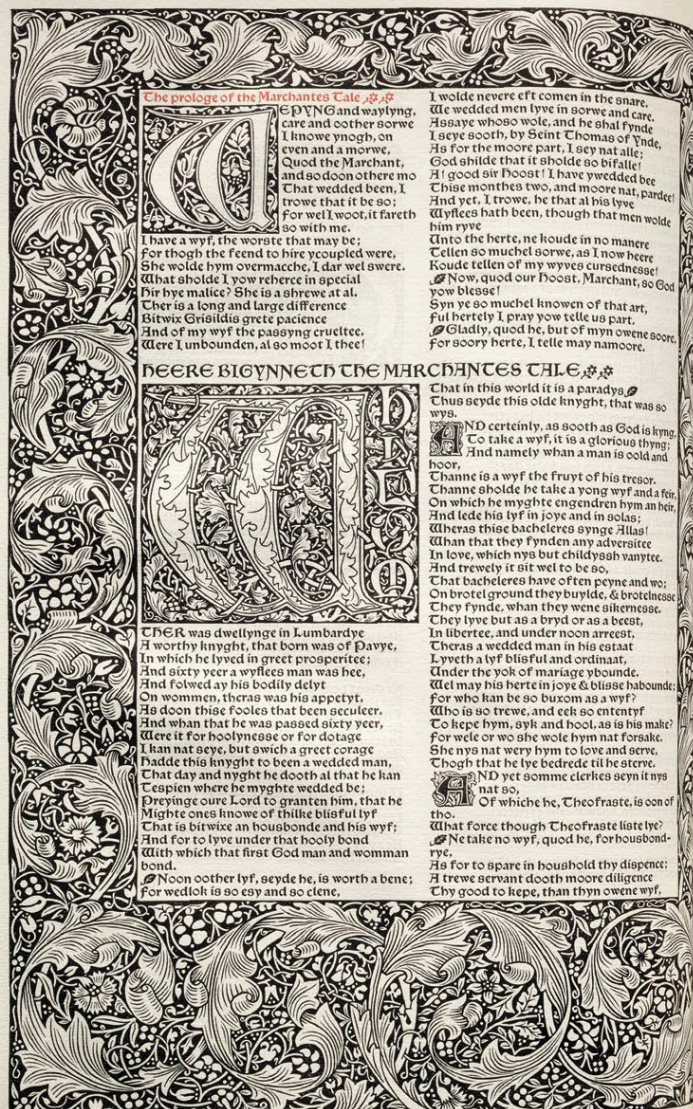 The prologe of the Marchantes Tale
WEPYNG and waylyng,
care and oother sorwe
I knowe ynogh, on
even and a morwe,
Quod the Marchant,
and so doon othere mo
That wedded been, I
trowe that it be so;
For wel I woot, it fareth
so with me.
I have a wyf, the worste that may be;
For thogh the feend to hire ycoupled were,
She wolde hym overmacche, I dar wel swere.
What sholde I yow reherce in special
Hir hye malice? She is a shrewe at al.
Ther is a long and large difference
Bitwix Grisildis grete pacience
And of my wyf the passyng crueltee.
Were I unbounden, al so moot I thee!
I wolde nevere eft comen in the snare.
We wedded men lyve in sorwe and care,
Assaye whoso wole, and he shal fynde
I seye sooth, by Seint Thomas of Ynde,
As for the moore part, I sey nat alle;
God shilde that it sholde so bifalle!
A! good sir Hoost! I have ywedded bee
Thise monthes two, and moore nat, pardee!
And yet, I trowe, he that al his lyve
Wyflees hath been, though that men wolde
him ryve
Unto the herte, ne koude in no manere
Tellen so muchel sorwe, as I now heere
Koude tellen of my wyves cursednesse!
Now, quod our Hoost, Marchant, so God
yow blesse!
Syn ye so muchel knowen of that art,
Ful hertely I pray yow telle us part.
Gladly, quod he, but of myn owene soore,
For soory herte, I telle may namoore.
HEERE BIGYNNETH THE MARCHANTES TALE
WHILOM
THER was dwellynge in Lumbardye
A worthy knyght, that born was of Pavye,
In which he lyved in greet prosperitee;
And sixty yeer a wyflees man was hee,
And folwed ay his bodily delyt
On wommen, theras was his appetyt,
As doon thise fooles that been seculeer.
And whan that he was passed sixty yeer,
Were it for hoolynesse or for dotage
I kan nat seye, but swich a greet corage
Hadde this knyght to been a wedded man,
That day and nyght he dooth al that he kan
Tespien where he myghte wedded be;
Preyinge oure Lord to granten him, that he
Mighte ones knowe of thilke blisful lyf
That is bitwixe an housbonde and his wyf;
And for to lyve under that hooly bond
With which that first God man and womman
bond.
Noon oother lyf, seyde he, is worth a bene;
For wedlok is so esy and so clene,
That in this world it is a paradys.
Thus seyde this olde knyght, that was so
wys.
AND certeinly, as sooth as God is kyng,
To take a wyf, it is a glorious thyng;
And namely whan a man is oold and
hoor,
Thanne is a wyf the fruyt of his tresor.
Thanne sholde he take a yong wyf and a feir,
On which he myghte engendren hym an heir,
And lede his lyf in joye and in solas;
Wheras thise bacheleres synge Allas!
Whan that they fynden any adversitee
In love, which nys but childyssh vanytee.
And trewely it sit wel to be so,
That bacheleres have often peyne and wo;
On brotel ground they buylde, & brotelnesse
They fynde, whan they wene sikernesse.
They lyve but as a bryd or as a beest,
In libertee, and under noon arreest,
Theras a wedded man in his estaat
Lyveth a lyf blisful and ordinaat,
Under the yok of mariage ybounde.
Wel may his herte in joye & blisse habounde;
For who kan be so buxom as a wyf?
Who is so trewe, and eek so ententyf
To kepe hym, syk and hool, as is his make?
For wele or wo she wole hym nat forsake.
She nys nat wery hym to love and serve,
Thogh that he lye bedrede til he sterve.
AND yet somme clerkes seyn it nys
nat so,
Of whiche he, Theofraste, is oon of
tho.
What force though Theofraste liste lye?
Ne take no wyf, quod he, for housbond-
rye,
As for to spare in houshold thy dispence;
A trewe servant dooth moore diligence
Thy good to kepe, than thyn owene wyf,